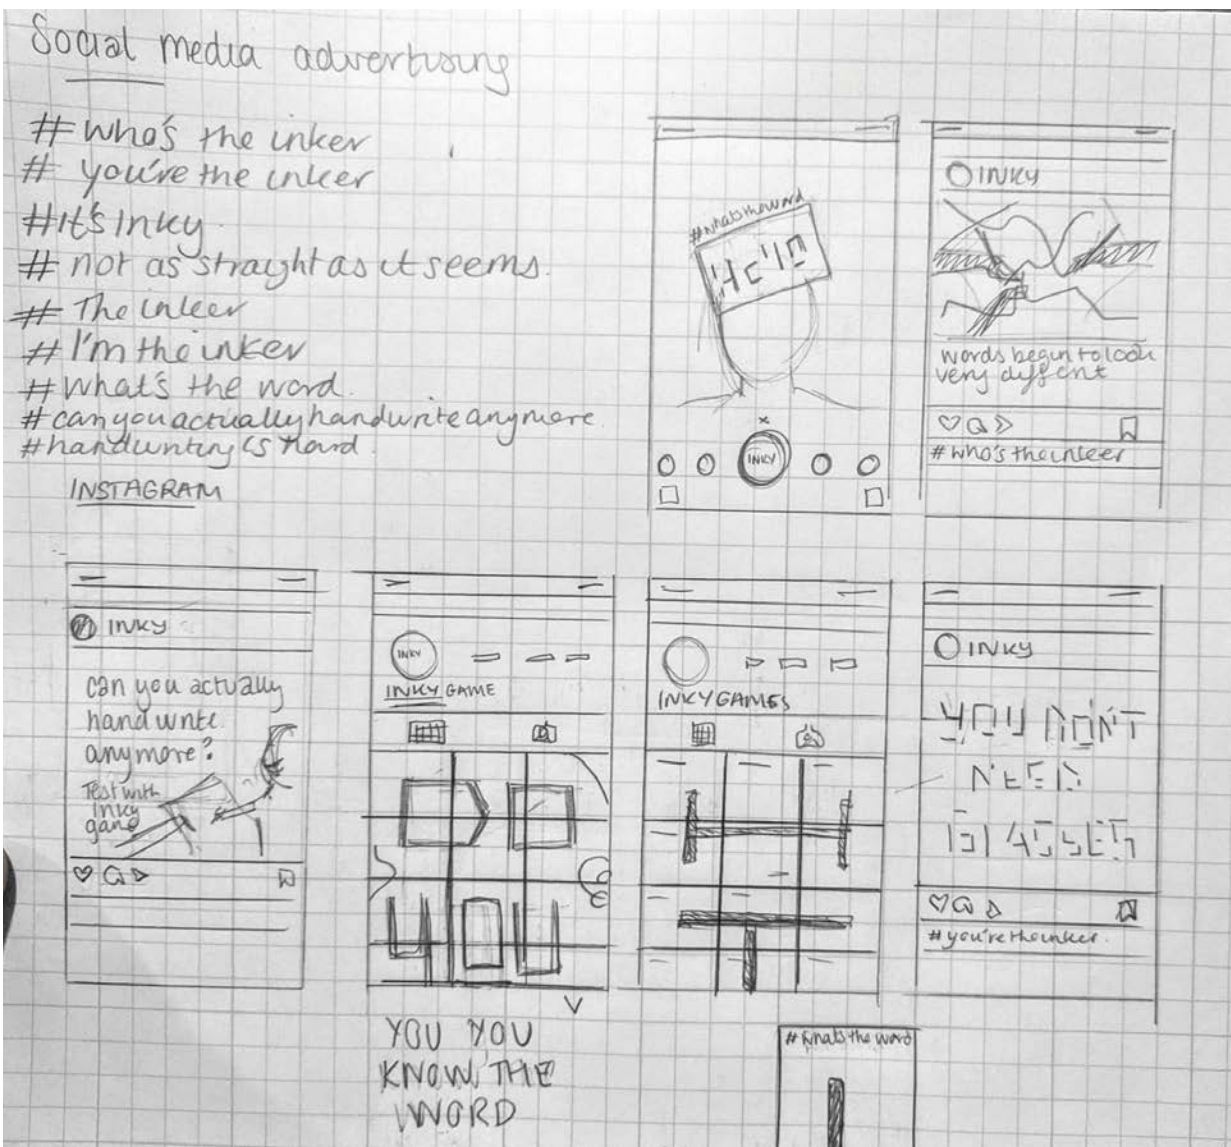 Social media advertising
# who's the inker
# you're the inker
# It's Inky.
# not as straight as it seems.
# The inker
# I'm the inker
# What's the word.
# can you actually handwrite anymore.
# handwriting is hard
INSTAGRAM
#whatstheword
INKY
INKY
words begin to look
very diffent
#who's theinker
INKY
can you actually
handwrite
anymore?
Test with
Inky
game
INKY
INKY GAME
DO
YOU
YOU YOU
KNOW THE
WORD
INKY GAMES
INKY
YOU DONT
NEED
GLASSES
#you'retheinker.
#whatstheword